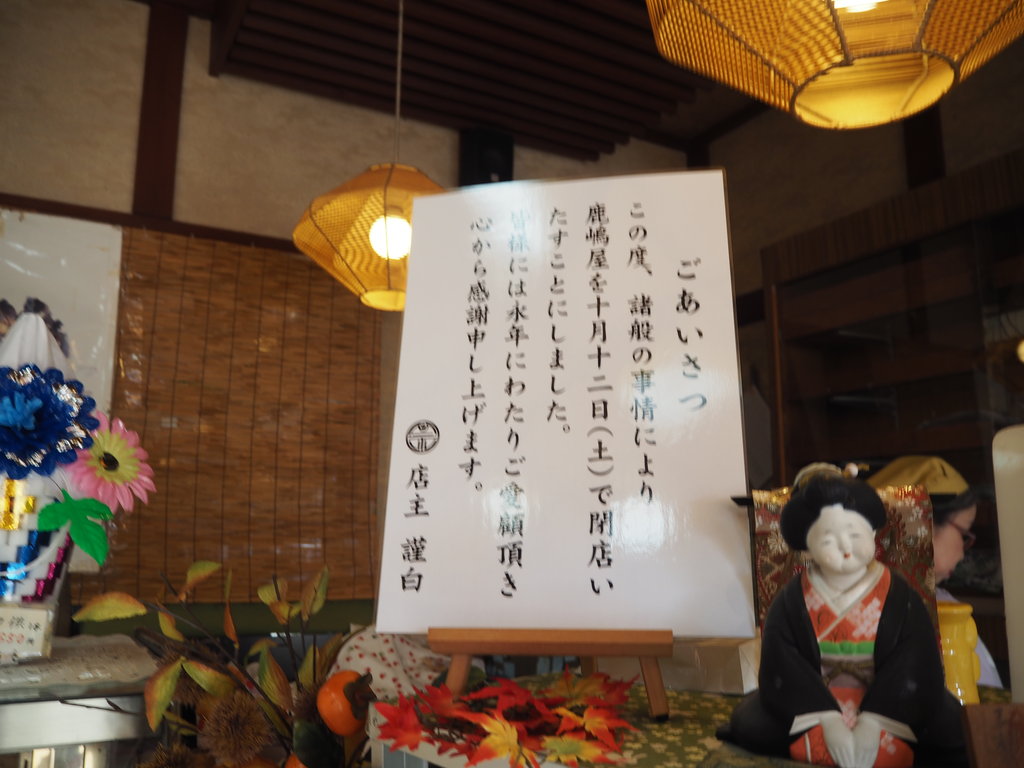 ごあいさつ
この度、諸般の事情により
鹿嶋屋を十月十二日(土)で閉店い
たすことにしました。
皆様には永年にわたりご愛顧頂き
心から感謝申し上げます。
店主 謹白